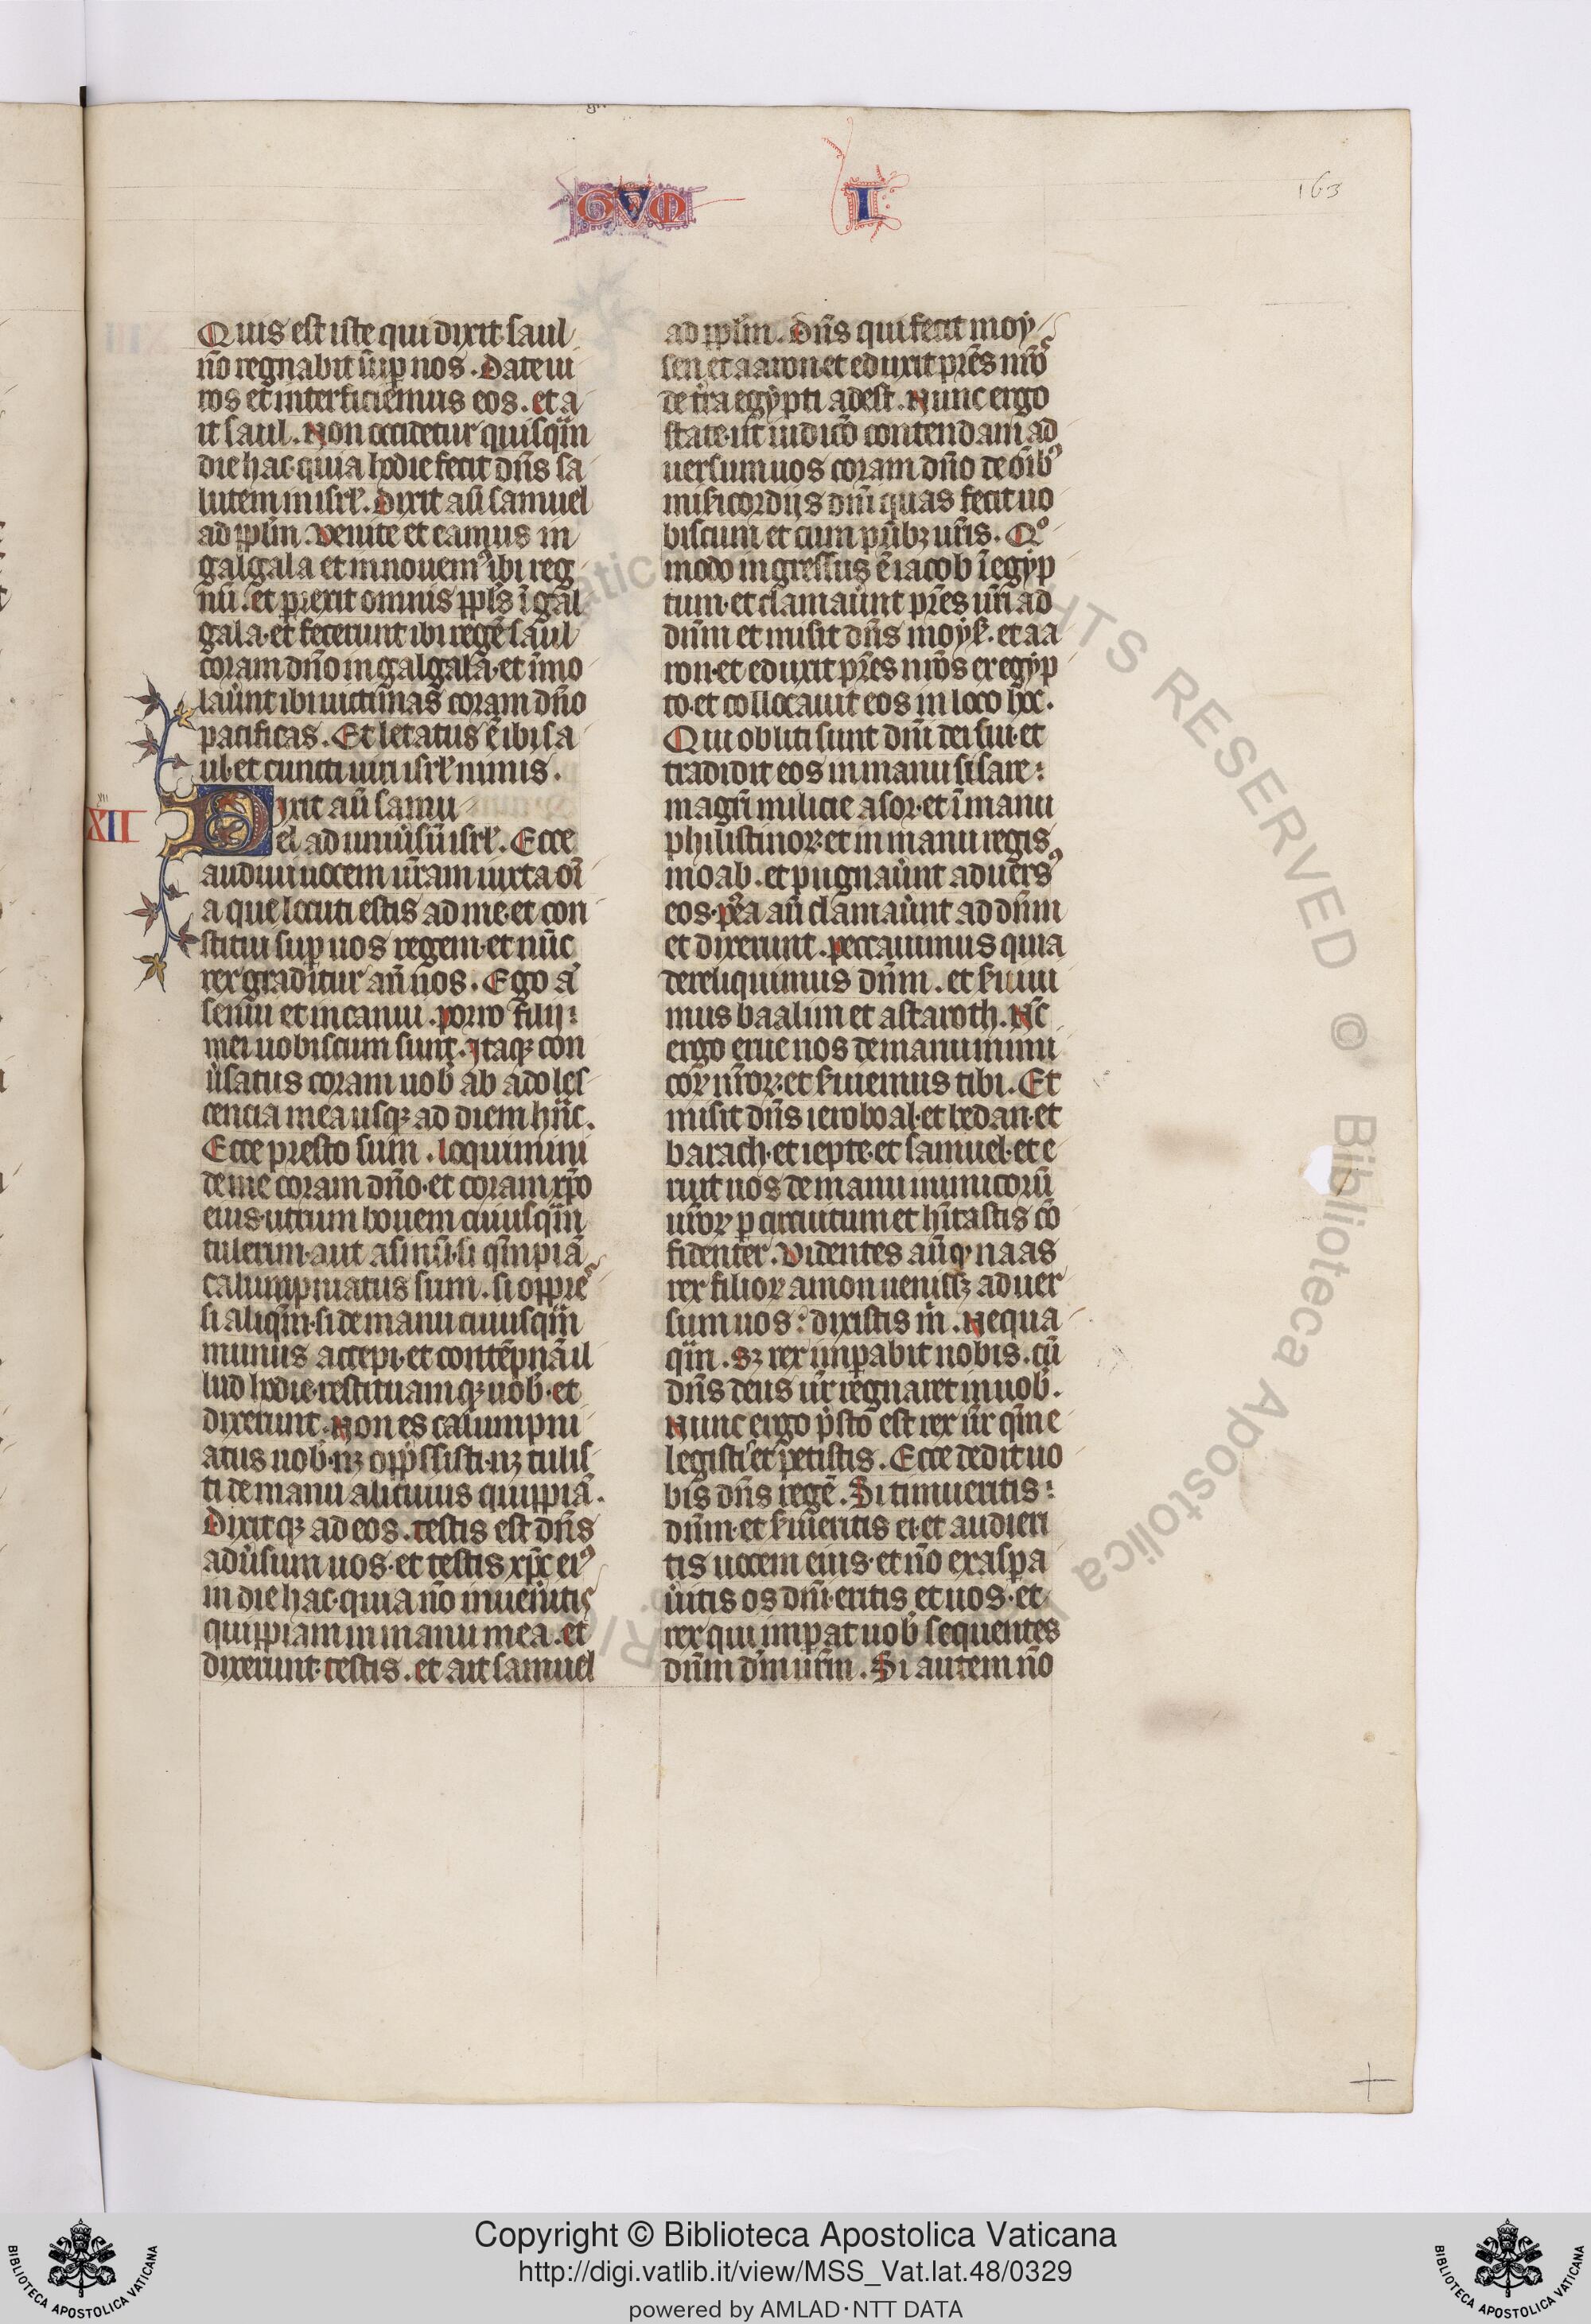 GVM I
163
Quis est iste qui dixit saul
nō regnabit sup̄ nos. Date ui
ros et interficiemus eos. et a
it saul. Non occidetur quisq̄m
die hac quia hodie fecit dn̄s sa
lutem in isrl̄. Dixit aū samuel
ad pplm̄. Venite et eamus in
galgala et innouemꝰ ibi reg
nū. et prexit omnis ppls̄ ī gal
gala· et fecerunt ibi regē saul
coram dn̄o in galgala· et īmo
laūnt ibi uictimas coram dn̄o
pacificas. Et letatus ē ibi sa
ul· et cuncti uiri isrl̄ nimis.
XII
Dixit aū samu
el ad uniūsū isrl̄. Ecce
audiui uocem ur̄am iuxta om̄i
a que locuti estis ad me· et con
stitui sup̄ uos regem· et nūc
rex graditur an̄ uos. Ego aū
senui et incanui. porro filij
mei uobiscum sunt. Itaqꝫ con
ūsatus coram uob̄ ab adoles
cencia mea usqꝫ ad diem hūc.
Ecce presto sum. loquimini
de me coram dn̄o· et coram xp̄o
eius· utrum bouem cuiusq̄m
tulerim· aut asinū· si q̄mpiā
calumpniatus sum. si oppre
ssi aliq̄m· si de manu cuiusq̄m
munus accepi· et contēpnā il
lud hodie· restituamqꝫ uob̄· et
dixerunt. Non es calumpni
atus nob̄· nꝫ opp̄ssisti· nꝫ tulis
ti de manu alicuius quippiā.
Dixitqꝫ ad eos. testis est dn̄s
adūsum uos· et testis xp̄c eiꝰ
in die hac· quia nō inuenitis
quippiam in manu mea. et
dixerunt· testis. et ait samuel
ad pplm̄. Dn̄s qui fecit moy
sen et aaron· et eduxit pr̄es nr̄os
de tr̄a egypti adest. Nunc ergo
state· ut iudicō contendam ad
uersum uos coram dn̄o de oīb̄ꝰ
misericordijs dn̄i quas fecit uo
biscum et cum pr̄ibꝫ ur̄is. Qoº
modo ingressus ē iacob ī egyp
tum· et clamaūnt pr̄es ur̄i ad
dn̄m et misit dn̄s moysē· et aa
ron· et eduxit pr̄es nr̄os ex egyp
to· et collocauit eos in loco hoc.
Qui obliti sunt dn̄i dei sui· et
tradidit eos in manu sisare
magr̄i milicie asor· et ī manu
philistinoꝝ· et in manu regis
moab. et pugnaūnt aduersꝰ
eos· pꝰea aū clamaūnt ad dn̄m
et dixerunt. peccauimus quia
dereliquimus dn̄m. et seruiui
mus baalim et astaroth. Nc̄
ergo erue nos de manu inimi
coꝝ nr̄oꝝ· et seruiemus tibi. Et
misit dn̄s ieroboal· et bedan· et
barach· et iepte· et samuel· et e
ruit uos de manu inimicorū
ur̄oꝝ p circuitum et hītastis cō
fidenter. Videntes aū qꝫ naas
rex filioꝝ amon uenissꝫ aduer
sum uos· dixistis m̄. Nequa
q̄m. sꝫ rex imp̄abit nobis. cū
dn̄s deus ur̄ regnaret in uob̄.
Nunc ergo p̄sto est rex ur̄ q̄m e
legistis et petistis. Ecce dedit uo
bis dn̄s regē. Si timueritis
dn̄m· et seruieritis ei· et audieri
tis uocem eius· et nō exaspa
ūitis os dn̄i· eritis et uos· et
rex qui imp̄at uob̄ sequentes
dn̄m dm̄ ur̄m. Si autem nō
HTS RESERVED © Biblioteca Apostolica
Copyright © Biblioteca Apostolica Vaticana
http://digi.vatlib.it/view/MSS_Vat.lat.48/0329
powered by AMLAD·NTT DATA
BIBLIOTECA APOSTOLICA VATICANA
BIBLIOTECA APOSTOLICA VATICANA